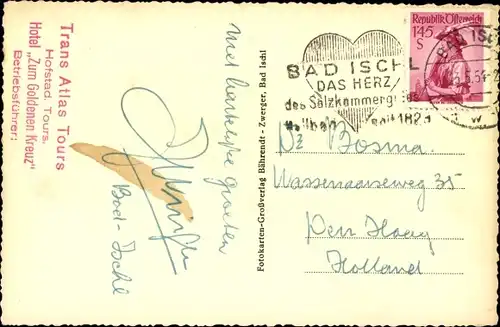 Trans Atlas Tours
Hofstad. Tours.
Hotel „Zum Goldenen Kreuz"
Betriebsführer:
Met hartelijke groeten
Bad-Ischl
Fotokarten-Großverlag Bährendt - Zwerger, Bad Ischl
BAD ISCHL
DAS HERZ
des Salzkammergutes
Heilbad seit 182
Republik Österreich
1·45
S
BAD ISC
5.54
Bosma.
Wassenaarseweg 35
Den Haag
Holland